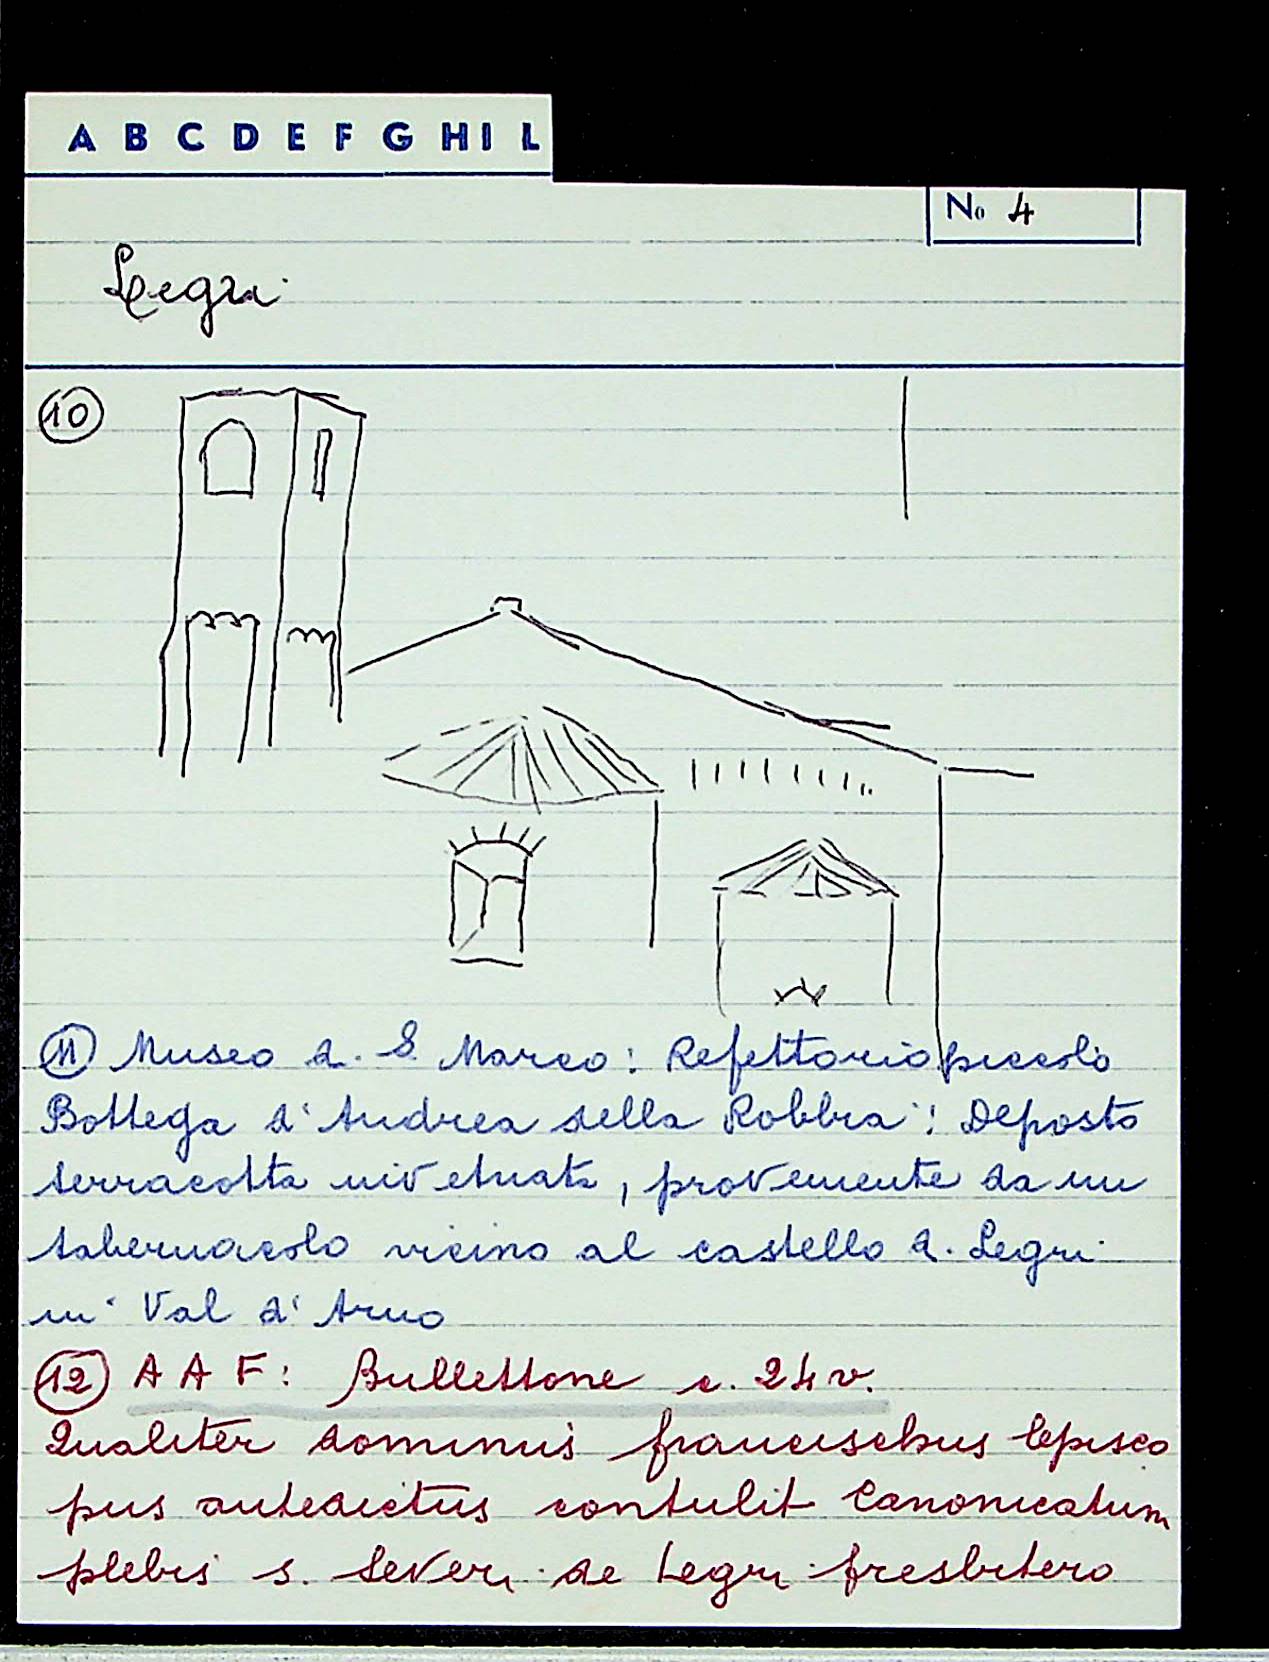 A B C D E F G H I L
No 4
Legri
10
11 Museo di S Marco: Refettorio piccolo
Bottega d'Andrea della Robbia: Deposto
terracotta invetriata, proveniente da un
tabernacolo vicino al castello di Legri
in Val d'Arno
12 A A F: Bullettone c. 24 v.
Qualiter dominus francischus Episco
pus antedictus contulit Canonicatum
plebis s. Severi de Legri presbitero